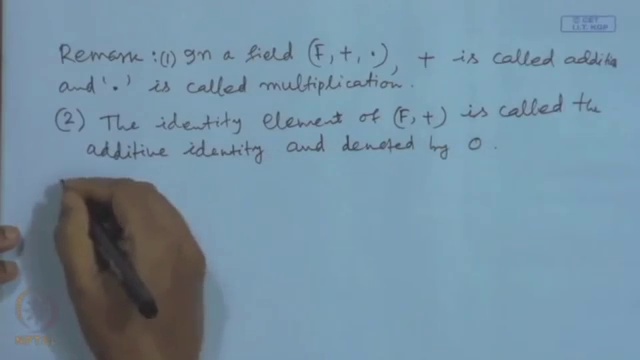 © CET
I.I.T. KGP
Remark : (1) In a field (F, +, ·), + is called additio
and '·' is called multiplication.
(2) The identity element of (F, +) is called the
additive identity and denoted by 0.
NPTEL